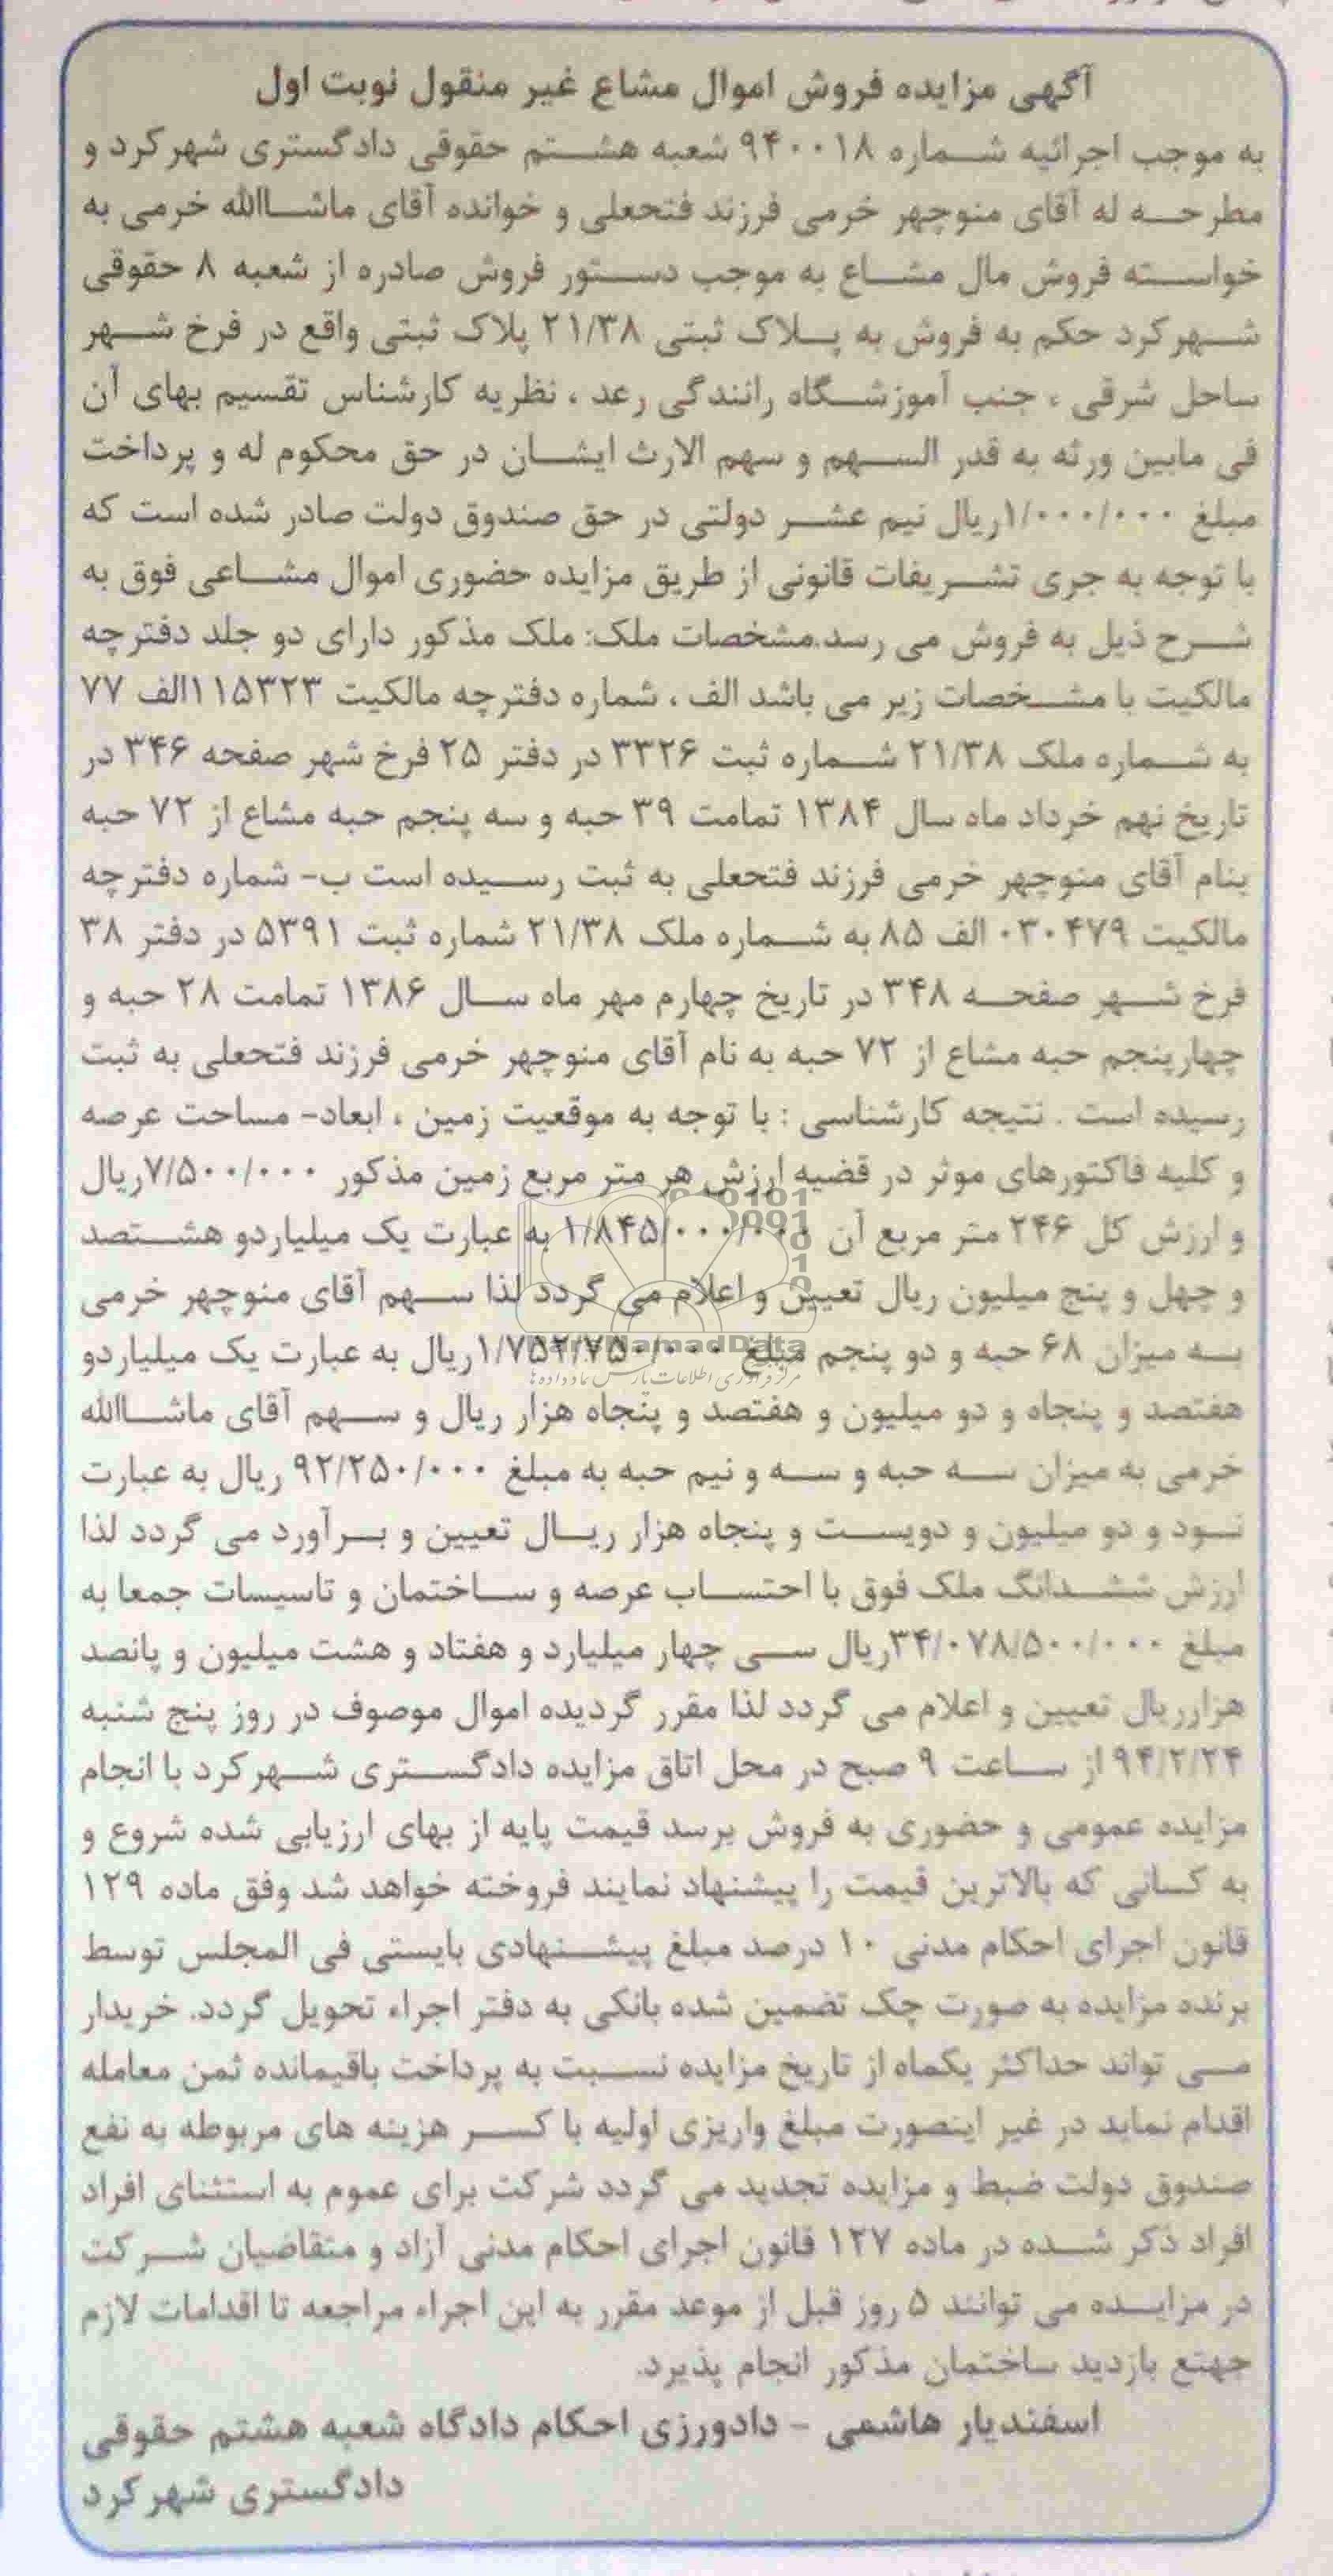 آگهی مزایده فروش اموال مشاع غیر منقول نوبت اول
به موجب اجرائیه شماره ۹۴۰۰۱۸ شعبه هشتم حقوقی دادگستری شهرکرد و
مطرحه له آقای منوچهر خرمی فرزند فتحعلی و خوانده آقای ماشاالله خرمی به
خواسته فروش مال مشاع به موجب دستور فروش صادره از شعبه ۸ حقوقی
شهرکرد حکم به فروش به پلاک ثبتی ۲۱/۳۸ پلاک ثبتی واقع در فرخ شهر
ساحل شرقی ، جنب آموزشگاه رانندگی رعد ، نظریه کارشناس تقسیم بهای آن
فی مابین ورثه به قدر السهم و سهم الارث ایشان در حق محکوم له و پرداخت
مبلغ ۱/۰۰۰/۰۰۰ریال نیم عشر دولتی در حق صندوق دولت صادر شده است که
با توجه به جری تشریفات قانونی از طریق مزایده حضوری اموال مشاعی فوق به
شرح ذیل به فروش می رسد.مشخصات ملک: ملک مذکور دارای دو جلد دفترچه
مالکیت با مشخصات زیر می باشد الف ، شماره دفترچه مالکیت ۱۱۵۳۲۳الف ۷۷
به شماره ملک ۲۱/۳۸ شماره ثبت ۳۳۲۶ در دفتر ۲۵ فرخ شهر صفحه ۳۴۶ در
تاریخ نهم خرداد ماه سال ۱۳۸۴ تمامت ۳۹ حبه و سه پنجم حبه مشاع از ۷۲ حبه
بنام آقای منوچهر خرمی فرزند فتحعلی به ثبت رسیده است ب- شماره دفترچه
مالکیت ۰۳۰۴۷۹ الف ۸۵ به شماره ملک ۲۱/۳۸ شماره ثبت ۵۳۹۱ در دفتر ۳۸
فرخ شهر صفحه ۳۴۸ در تاریخ چهارم مهر ماه سال ۱۳۸۶ تمامت ۲۸ حبه و
چهارپنجم حبه مشاع از ۷۲ حبه به نام آقای منوچهر خرمی فرزند فتحعلی به ثبت
رسیده است . نتیجه کارشناسی : با توجه به موقعیت زمین ، ابعاد- مساحت عرصه
و کلیه فاکتورهای موثر در قضیه ارزش هر متر مربع زمین مذکور ۷/۵۰۰/۰۰۰ریال
و ارزش کل ۲۴۶ متر مربع آن ۱/۸۴۵/۰۰۰/۰۰۰ به عبارت یک میلیاردو هشتصد
و چهل و پنج میلیون ریال تعیین و اعلام می گردد لذا سهم آقای منوچهر خرمی
به میزان ۶۸ حبه و دو پنجم مبلغ ۱/۷۵۲/۷۵۰/۰۰۰ریال به عبارت یک میلیاردو
هفتصد و پنجاه و دو میلیون و هفتصد و پنجاه هزار ریال و سهم آقای ماشاالله
خرمی به میزان سه حبه و سه و نیم حبه به مبلغ ۹۲/۲۵۰/۰۰۰ ریال به عبارت
نود و دو میلیون و دویست و پنجاه هزار ریال تعیین و برآورد می گردد لذا
ارزش ششدانگ ملک فوق با احتساب عرصه و ساختمان و تاسیسات جمعا به
مبلغ ۳۴/۰۷۸/۵۰۰/۰۰۰ریال سی چهار میلیارد و هفتاد و هشت میلیون و پانصد
هزارریال تعیین و اعلام می گردد لذا مقرر گردیده اموال موصوف در روز پنج شنبه
۹۴/۲/۲۴ از ساعت ۹ صبح در محل اتاق مزایده دادگستری شهرکرد با انجام
مزایده عمومی و حضوری به فروش برسد قیمت پایه از بهای ارزیابی شده شروع و
به کسانی که بالاترین قیمت را پیشنهاد نمایند فروخته خواهد شد وفق ماده ۱۲۹
قانون اجرای احکام مدنی ۱۰ درصد مبلغ پیشنهادی بایستی فی المجلس توسط
برنده مزایده به صورت چک تضمین شده بانکی به دفتر اجراء تحویل گردد. خریدار
می تواند حداکثر یکماه از تاریخ مزایده نسبت به پرداخت باقیمانده ثمن معامله
اقدام نماید در غیر اینصورت مبلغ واریزی اولیه با کسر هزینه های مربوطه به نفع
صندوق دولت ضبط و مزایده تجدید می گردد شرکت برای عموم به استثنای افراد
افراد ذکر شده در ماده ۱۲۷ قانون اجرای احکام مدنی آزاد و متقاضیان شرکت
در مزایده می توانند ۵ روز قبل از موعد مقرر به این اجراء مراجعه تا اقدامات لازم
جهتع بازدید ساختمان مذکور انجام پذیرد.
اسفندیار هاشمی - دادورزی احکام دادگاه شعبه هشتم حقوقی
دادگستری شهرکرد
ParsNamadData
مرکز فرآوری اطلاعات پارس نماد داده ها